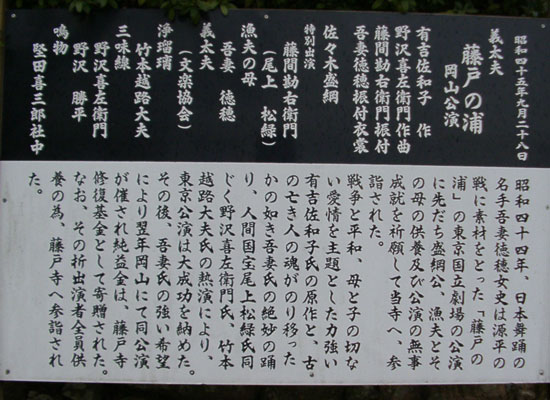 昭和四十五年九月二十八日
義太夫
藤戸の浦
岡山公演
有吉佐和子 作
野沢喜左衛門作曲
藤間勘右衛門振付
吾妻徳穂振付衣裳
佐々木盛綱
特別出演
藤間勘右衛門
(尾上 松緑)
漁夫の母
吾妻 徳穂
義太夫
(文楽協会)
浄瑠璃
竹本越路大夫
三味線
野沢喜左衛門
野沢 勝平
鳴物
堅田喜三郎社中
昭和四十四年、日本舞踊の
名手吾妻徳穂女史は源平の
戦に素材をとった「藤戸の
浦」の東京国立劇場の公演
に先だち盛綱公、漁夫とそ
の母の供養及び公演の無事
成就を祈願して当寺へ、参
詣された。
戦争と平和、母と子の切な
い愛情を主題とした力強い
有吉佐和子氏の原作と、古
の亡き人の魂がのり移った
かの如き吾妻氏の絶妙の踊
り、人間国宝尾上松緑氏同
じく野沢喜左衛門氏、竹本
越路大夫氏の熱演により、
東京公演は大成功を納めた。
その後、吾妻氏の強い希望
により翌年岡山にて同公演
が催され純益金は、藤戸寺
修復基金として寄贈された。
なお、その折出演者全員供
養の為、藤戸寺へ参詣され
た。